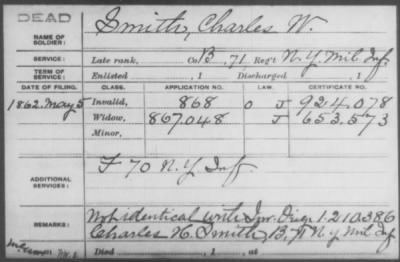 DEAD
NAME OF SOLDIER: Smith, Charles W.
SERVICE: Late rank, Co B. 71 Reg't N.Y. Mil Inf.
TERM OF SERVICE: Enlisted , 1 Discharged , 1
DATE OF FILING. CLASS. APPLICATION NO. LAW. CERTIFICATE NO.
1862. May 5 Invalid, 868 O J 924.078
Widow, 867.048 J 653.573
Minor,
ADDITIONAL SERVICES: F 70 N.Y. Inf.
REMARKS: Not identical with Inv. Orig. 1.210386
Charles H. Smith, B. 71 N.Y. Mil Inf
Died , 1 , at